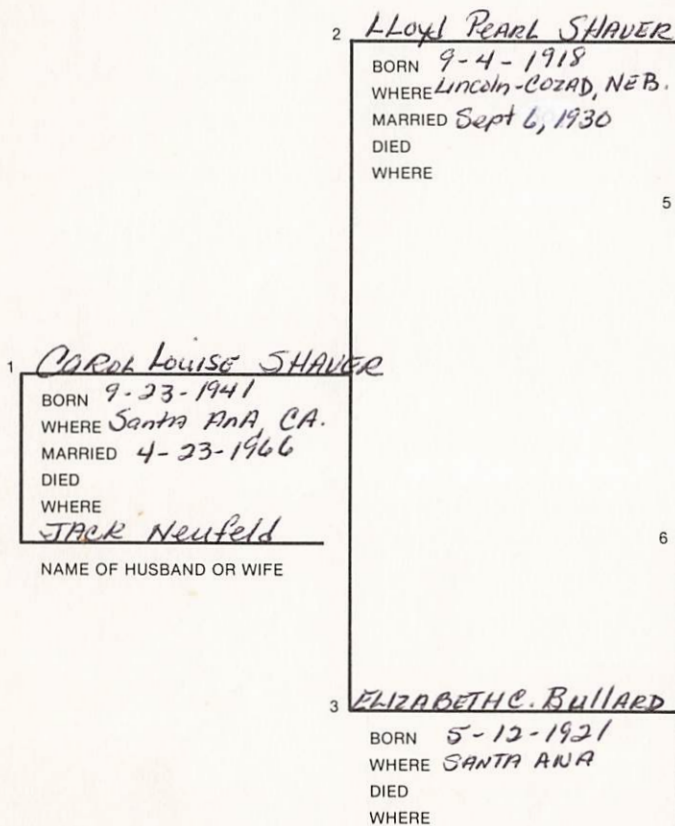 2 LLoyd Pearl SHAVER
BORN 9-4-1918
WHERE Lincoln-COZAD, NEB.
MARRIED Sept 6, 1930
DIED
WHERE
5
1 CAROL Louise SHAVER
BORN 9-23-1941
WHERE Santa AnA, CA.
MARRIED 4-23-1966
DIED
WHERE
JACK Neufeld
NAME OF HUSBAND OR WIFE
6
3 ELIZABETH C. BullARD
BORN 5-12-1921
WHERE SANTA ANA
DIED
WHERE